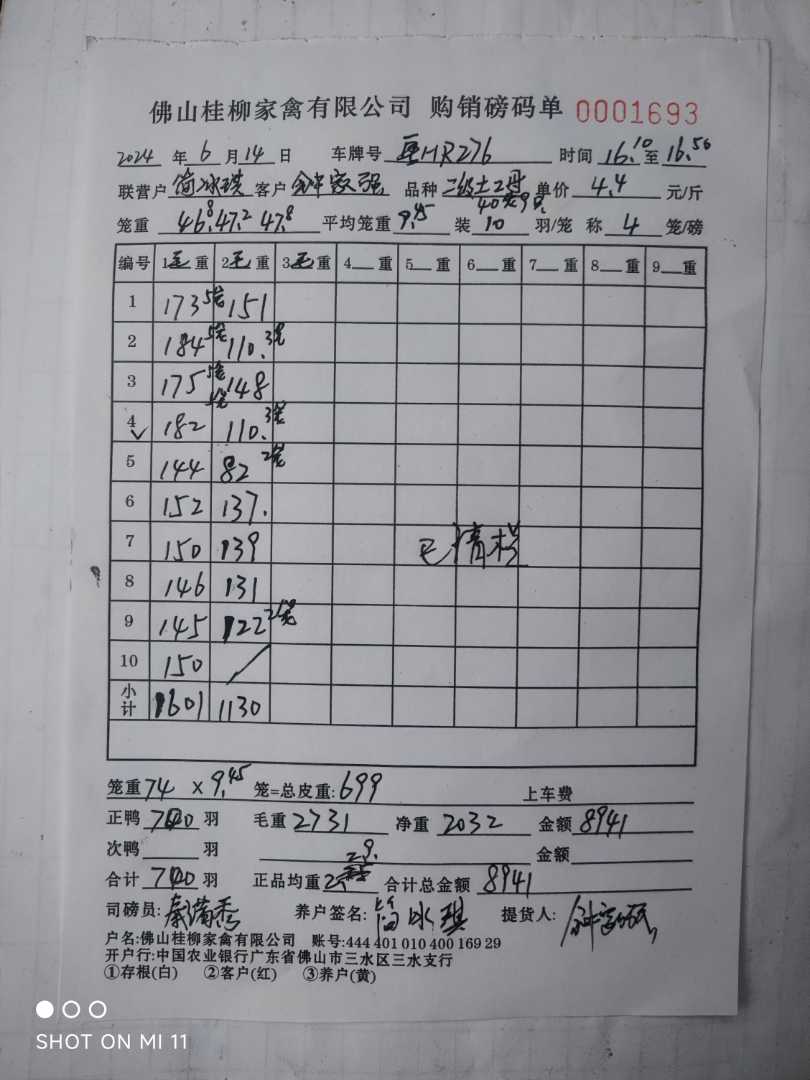 佛山桂柳家禽有限公司 购销磅码单 0001693
2024 年 6 月 14 日 车牌号 HR276 时间 16.10 至 16.56
联营户 简冰琪 客户 钟 强 品种 二级土 单价 4.4 元/斤
笼重 46.8 47.2 47.8 平均笼重 9.45 装 10 羽/笼 称 4 笼/磅
编号 1毛重 2毛重 3毛重 4 重 5 重 6 重 7 重 8 重 9 重
1 173 5笼 151
2 184 5笼 110. 3笼
3 175 5笼 148
4 182 110. 3笼
5 144 82 2笼
6 152 137.
7 150 139
8 146 131
9 145 122
10 150
小计 1601 1130
毛 清 栏
笼重 74 × 9.45 笼=总皮重: 699 上车费
正鸭 740 羽 毛重 2731 净重 2032 金额 8941
次鸭 羽 金额
合计 740 羽 正品均重 合计总金额 8941
司磅员: 养户签名: 简冰琪 提货人:
户名:佛山桂柳家禽有限公司 账号:444 401 010 400 169 29
开户行:中国农业银行广东省佛山市三水区三水支行
①存根(白) ②客户(红) ③养户(黄)
SHOT ON MI 11